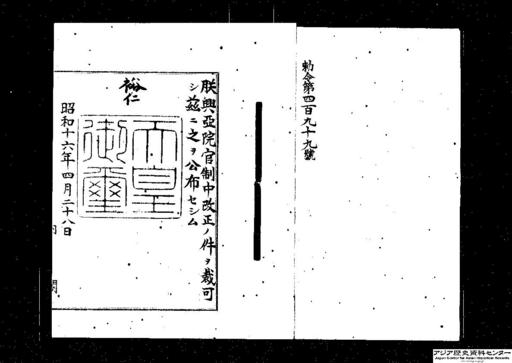 勅令第四百九十九號
朕興亞院官制中改正ノ件ヲ裁可
シ茲ニ之ヲ公布セシム
裕仁
天皇御璽
昭和十六年四月二十八日
内閣
アジア歴史資料センター
Japan Center for Asian Historical Records